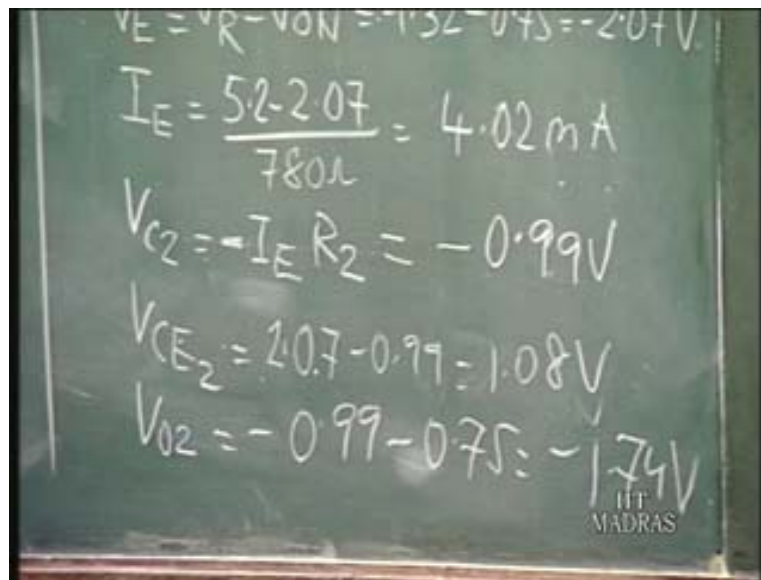 VE = VR - VON = -1.32 - 0.75 = -2.07V.
IE = 5.2-2.07 / 780Ω = 4.02mA
VC2 = -IE R2 = -0.99V
VCE2 = 20.7-0.99 = 1.08V
V02 = -0.99-0.75 = -1.74V
IIT
MADRAS